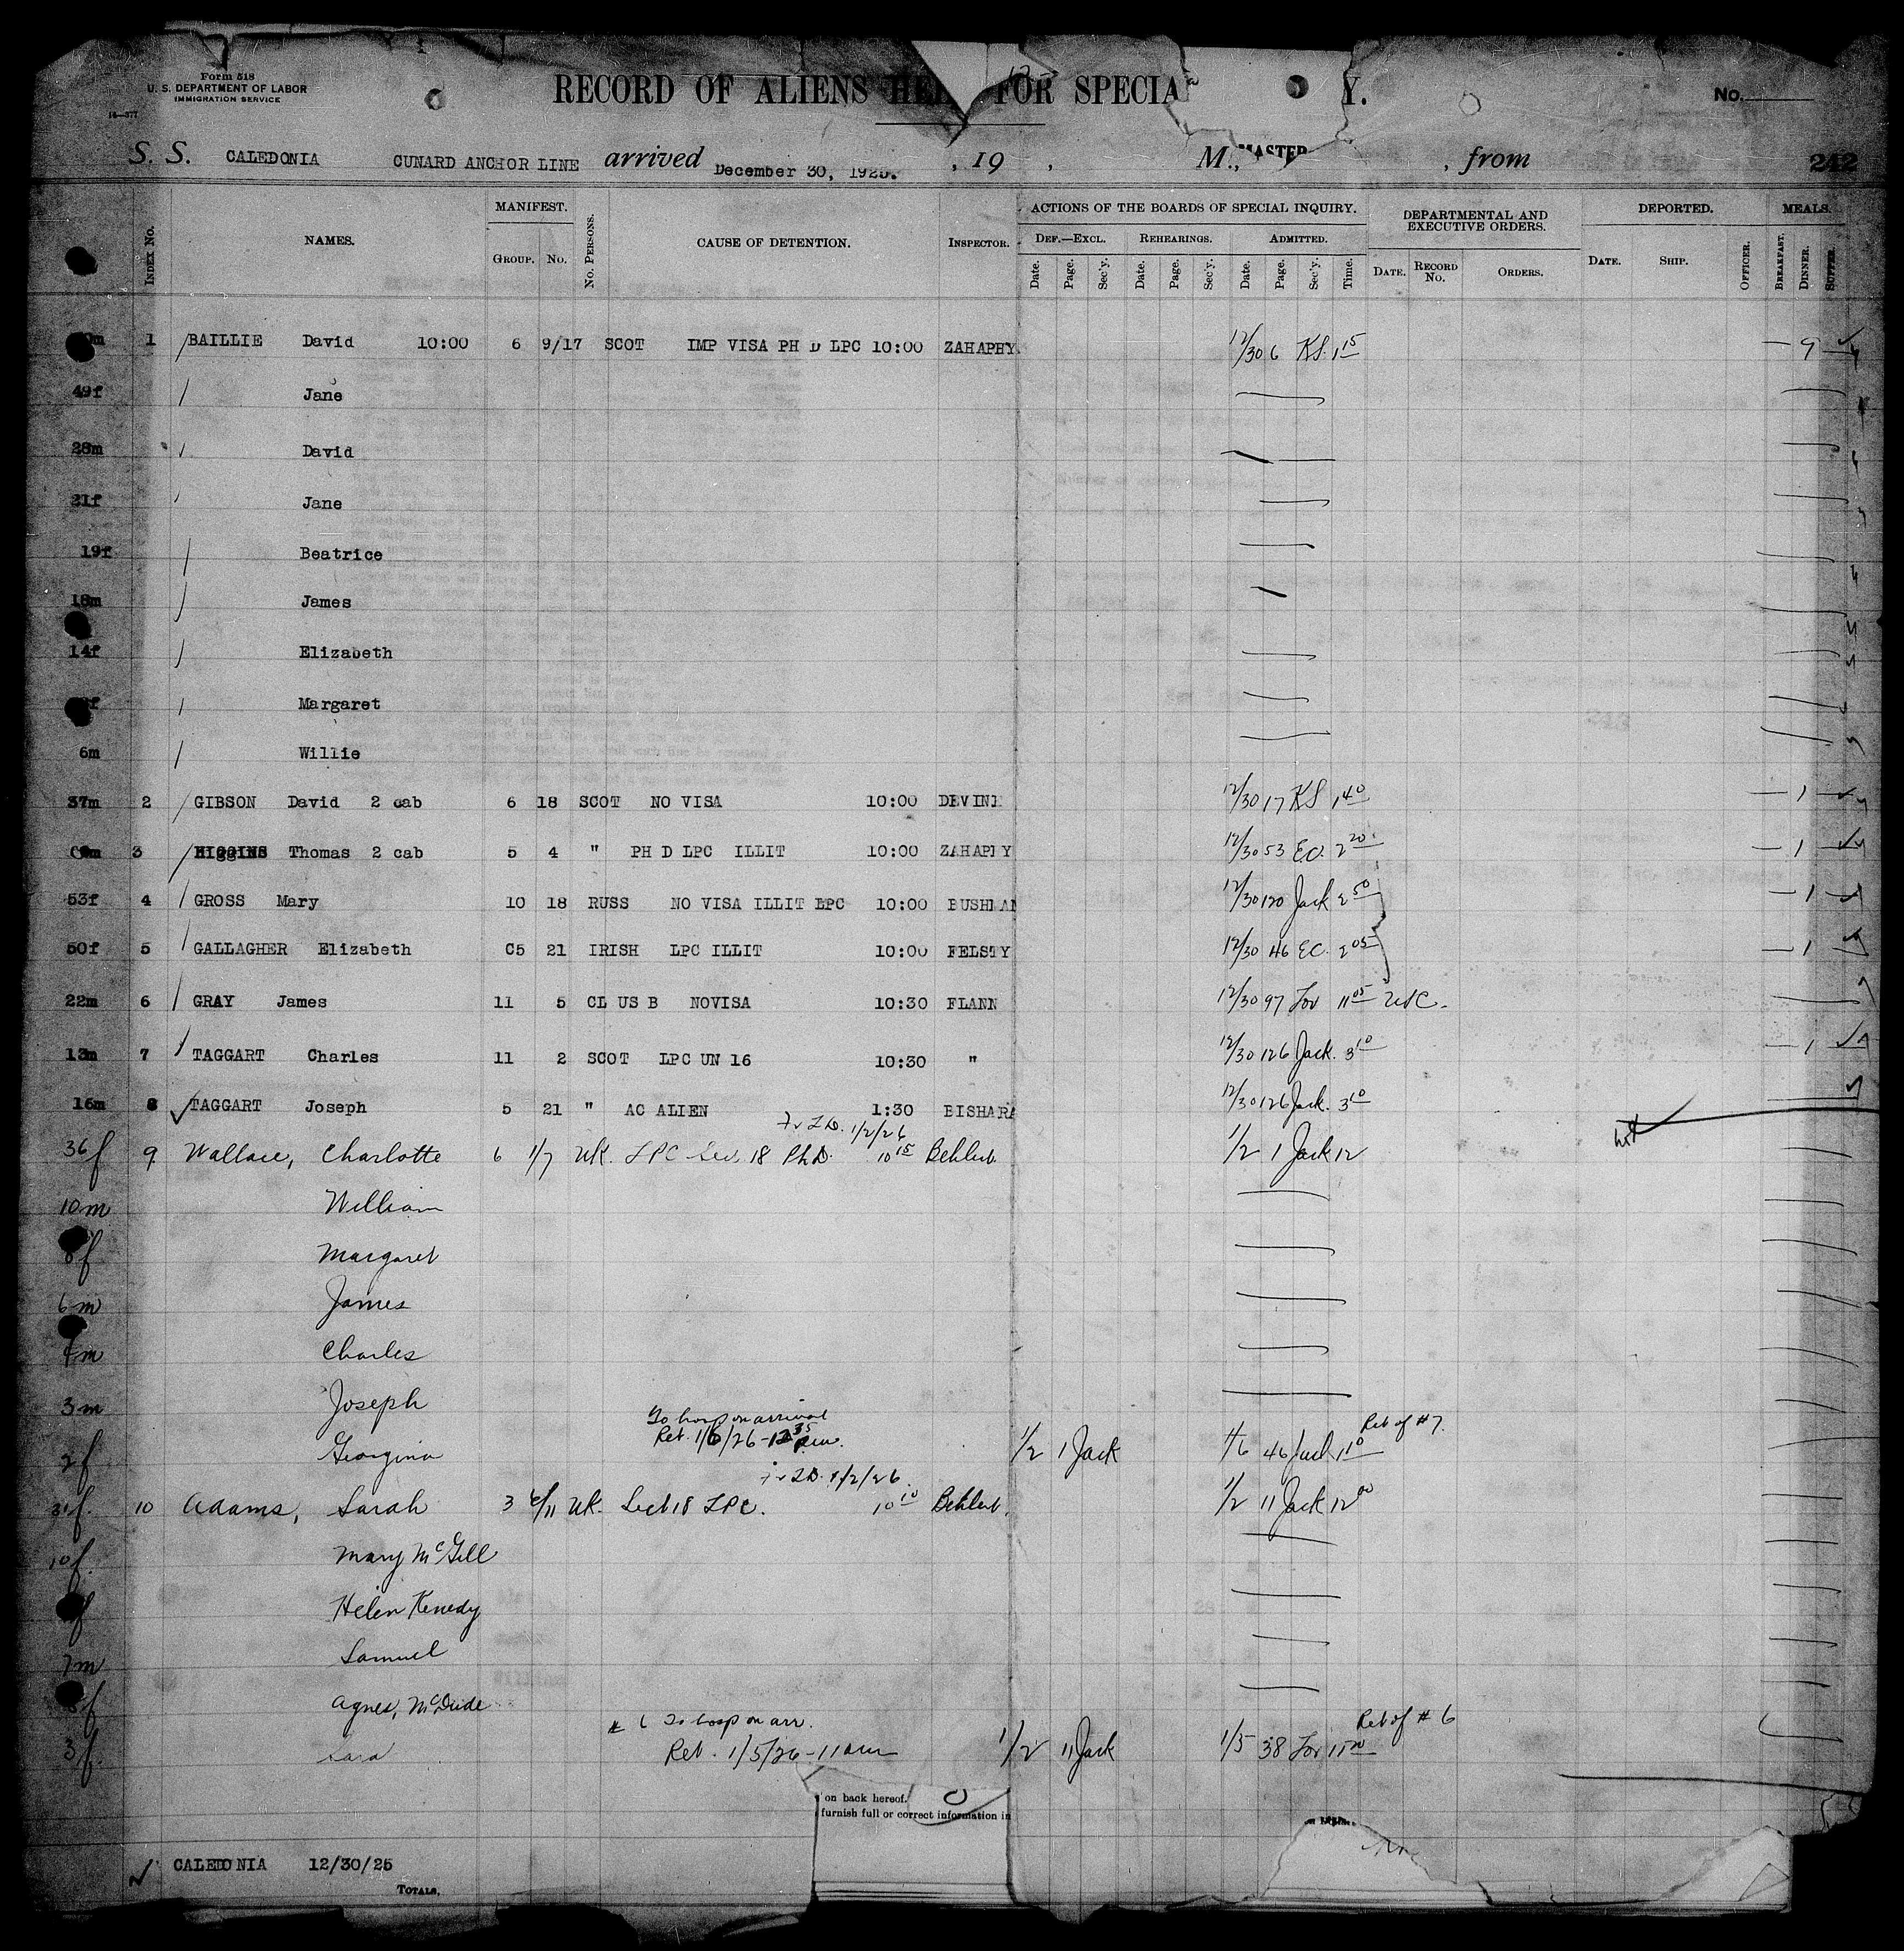 Form 518
U. S. DEPARTMENT OF LABOR
IMMIGRATION SERVICE
16—377
RECORD OF ALIENS HEL FOR SPECIA Y.
No.
S. S. CALEDONIA CUNARD ANCHOR LINE arrived December 30, 1925. , 19 , M., MASTER , from 242
INDEX No. NAMES. MANIFEST. GROUP. No. No. PERSONS. CAUSE OF DETENTION. INSPECTOR. ACTIONS OF THE BOARDS OF SPECIAL INQUIRY. DEPARTMENTAL AND EXECUTIVE ORDERS. DEPORTED. MEALS.
DEF.—EXCL. REHEARINGS. ADMITTED.
Date. Page. Sec'y. Date. Page. Sec'y. Date. Page. Sec'y. Time. DATE. RECORD No. ORDERS. DATE. SHIP. OFFICER. BREAKFAST. DINNER. SUPPER.
1 BAILLIE David 10:00 6 9/17 SCOT IMP VISA PH D LPC 10:00 ZAHAPHY 12/30 6 KS. 1 15 9
49f Jane
28m David
21f Jane
19f Beatrice
18m James
14f Elizabeth
Margaret
6m Willie
37m 2 GIBSON David 2 cab 6 18 SCOT NO VISA 10:00 DEVINE 12/30 17 KS 1 40 1
3 HIGGINS Thomas 2 cab 5 4 " PH D LPC ILLIT 10:00 ZAHAPHY 12/30 53 EC. 2 20 1
53f 4 GROSS Mary 10 18 RUSS NO VISA ILLIT LPC 10:00 BUSHLAN 12/30 120 Jack 2 50 1
50f 5 GALLAGHER Elizabeth C5 21 IRISH LPC ILLIT 10:00 FELSTY 12/30 46 EC. 2 05 1
22m 6 GRAY James 11 5 CL US B NOVISA 10:30 FLANN 12/30 97 Lov 11 05 USC.
13m 7 TAGGART Charles 11 2 SCOT LPC UN 16 10:30 " 12/30 126 Jack. 3 10 1
16m 8 TAGGART Joseph 5 21 " AC ALIEN 1:30 BISHARA 12/30 126 Jack. 3 10
Tr I.D. 1/2/26
36f 9 Wallace, Charlotte 6 1/7 UK. LPC Sec. 18 Ph.D. 10 15 Behlert 1/2 1 Jack 12
10m William
8f Margaret
6m James
4m Charles
3m Joseph
To hosp on arrival
Ret of #7.
2f Georgina Ret. 1/6/26 - 12 35 pm. 1/2 1 Jack 1/6 46 Jack 1 10
Tr I.D. 1/2/26.
31f. 10 Adams, Sarah 3 6/11 UK. Sect 18 LPC. 10 10 Behlert. 1/2 11 Jack 12 00
10f. Mary McGill
Helen Kenedy
7m Samuel
Agnes, McDude
# 6 To hosp on arr.
Ret of # 6
3f. Sara Ret. 1/5/26 - 11 am 1/2 11 Jack 1/5 38 Lov 11 50
on back hereof.
furnish full or correct information in
CALEDONIA 12/30/25
TOTALS.